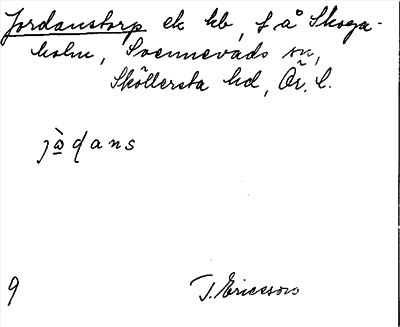 Jordanstorp ek kb, f å Skoga-
holm, Svennevads sn,
Sköllersta hd, Ör. l.
jɑ̀ɖans
9
T. Ericsson